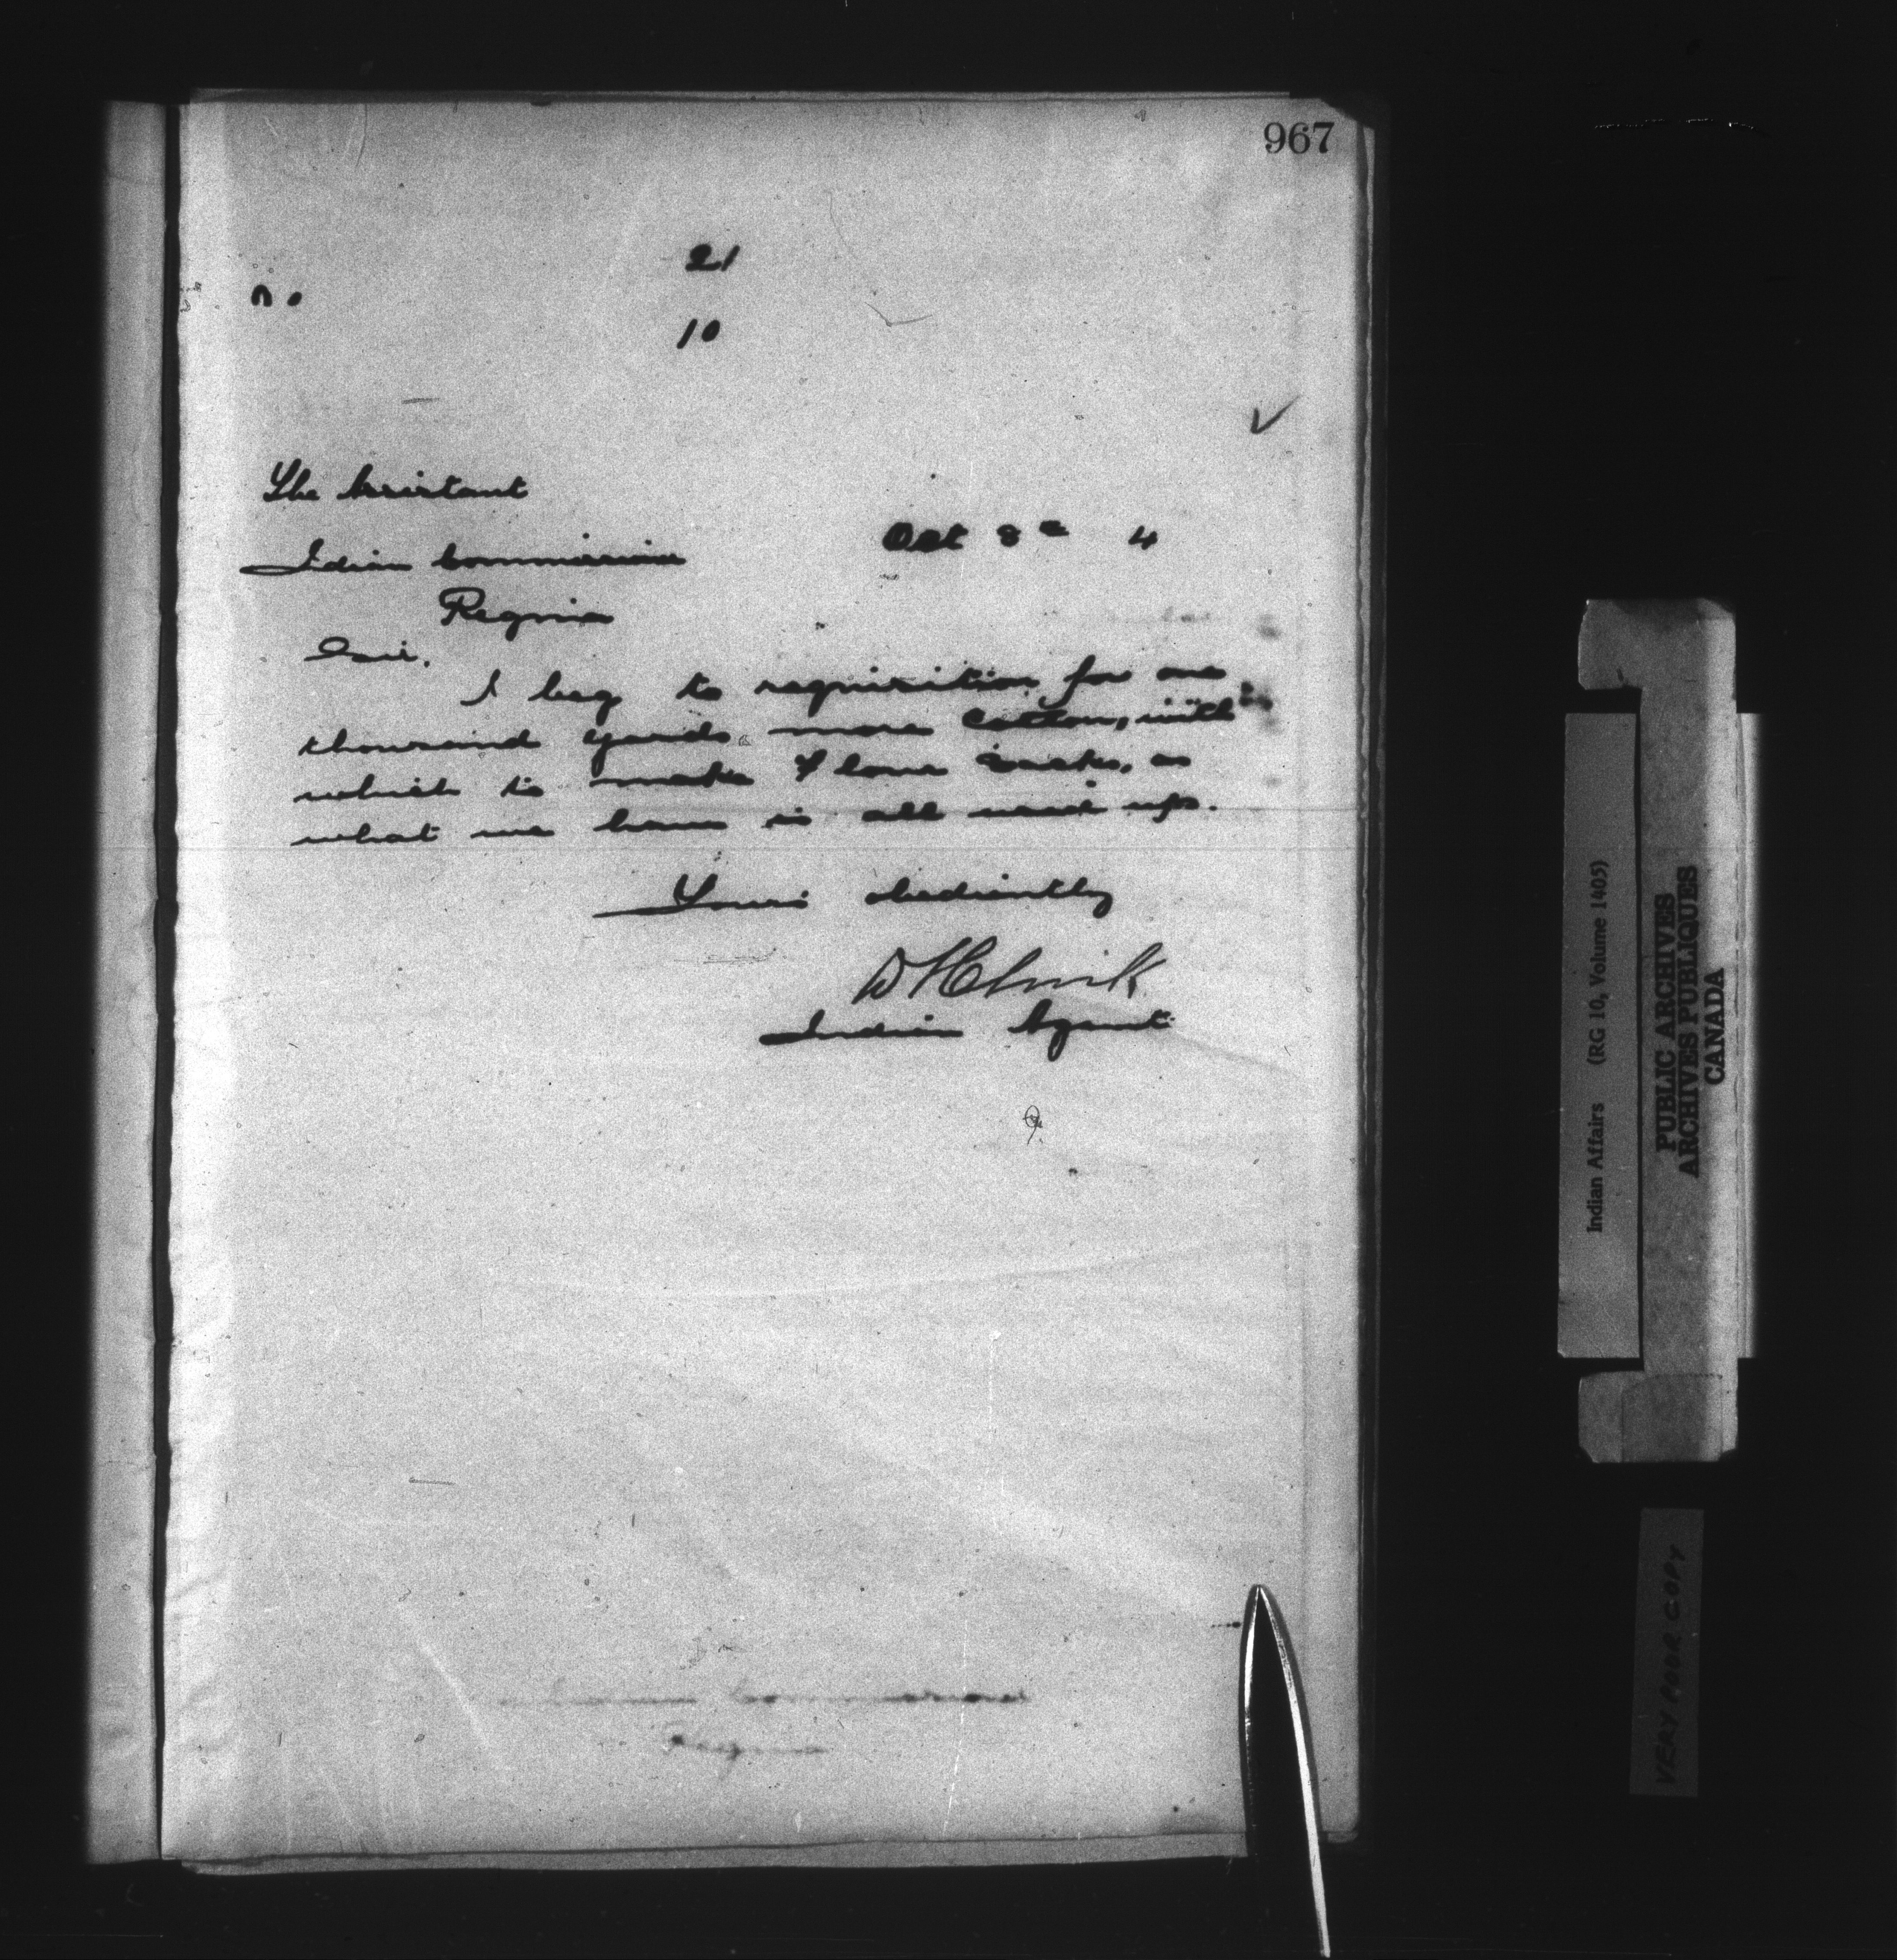 967
21
10
The Assistant
Indian Commissioner
Oct 8th 4
Regina
Sir,
I beg to requisition for one
thousand yards more Cotton, with
which to make Flour Sacks, as
what we have is all used up.
Yours obediently
Indian Agent
Indian Affairs (RG 10, Volume 1405)
PUBLIC ARCHIVES
ARCHIVES PUBLIQUES
CANADA
VERY POOR COPY